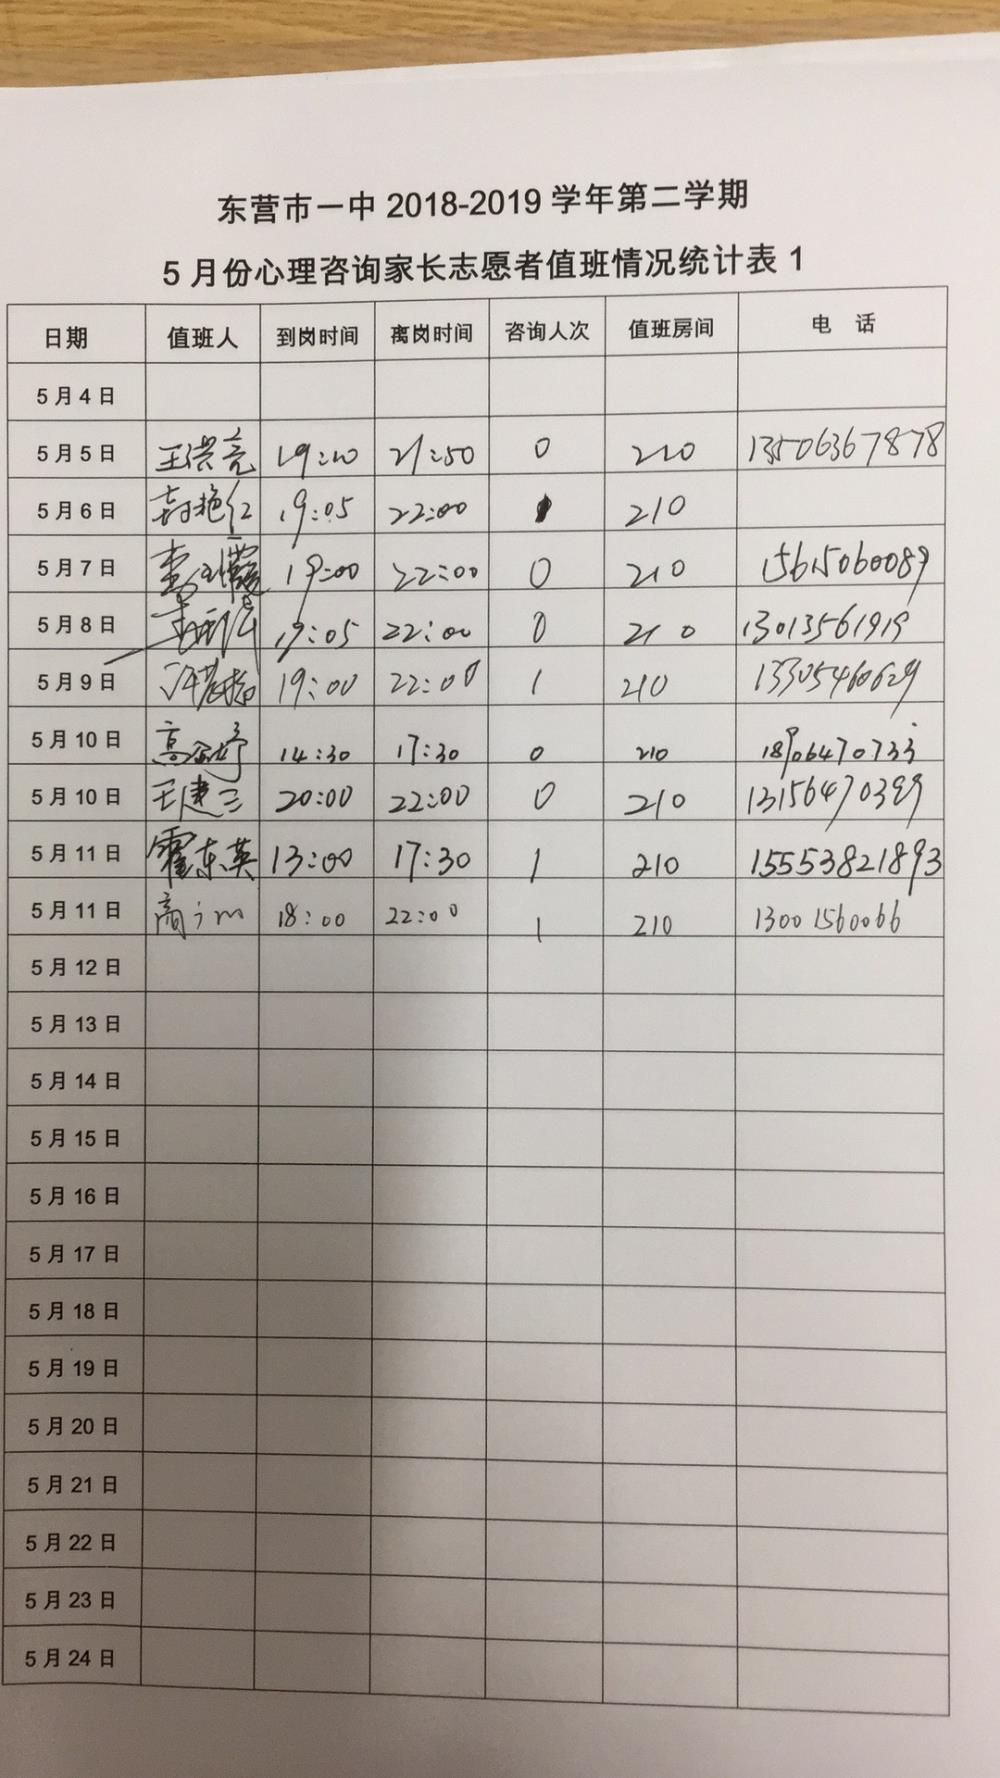 东营市一中 2018-2019 学年第二学期
5 月份心理咨询家长志愿者值班情况统计表 1
日期 值班人 到岗时间 离岗时间 咨询人次 值班房间 电 话
5 月 4 日
5 月 5 日 王洪亮 19:10 21:50 0 210 13506367878
5 月 6 日 19:05 22:00 210
5 月 7 日 19:00 22:00 0 210 15615060089
5 月 8 日 19:05 22:00 0 210 13013561919
5 月 9 日 19:00 22:00 1 210 13305460629
5 月 10 日 14:30 17:30 0 210
5 月 10 日 王建三 20:00 22:00 0 210 13156470399
5 月 11 日 霍东英 13:00 17:30 1 210 15553821893
5 月 11 日 18:00 22:00 1 210 13001560066
5 月 12 日
5 月 13 日
5 月 14 日
5 月 15 日
5 月 16 日
5 月 17 日
5 月 18 日
5 月 19 日
5 月 20 日
5 月 21 日
5 月 22 日
5 月 23 日
5 月 24 日